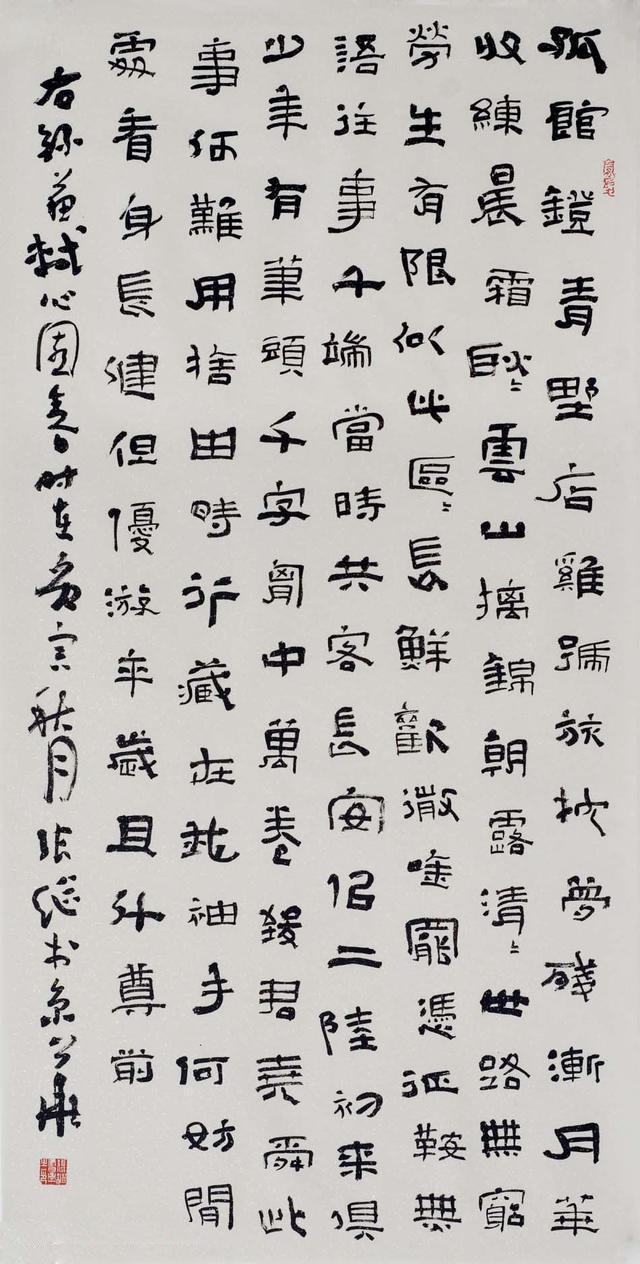 孤館鐙青野店雞號旅枕夢殘漸月華
收練晨霜耿〻雲山摛錦朝露清〻世路無窮
勞生有限似此區〻長鮮歡微唫罷憑征鞍無
語往事千端當時共客長安佀二陸初來俱
少年有筆頭千字胷中萬卷致君堯舜此
事何難用捨由時行藏在我袖手何妨閒
處看身長健但優游卒歲且斗尊前
右錄蘇軾心園春時在寅秋月張继书京